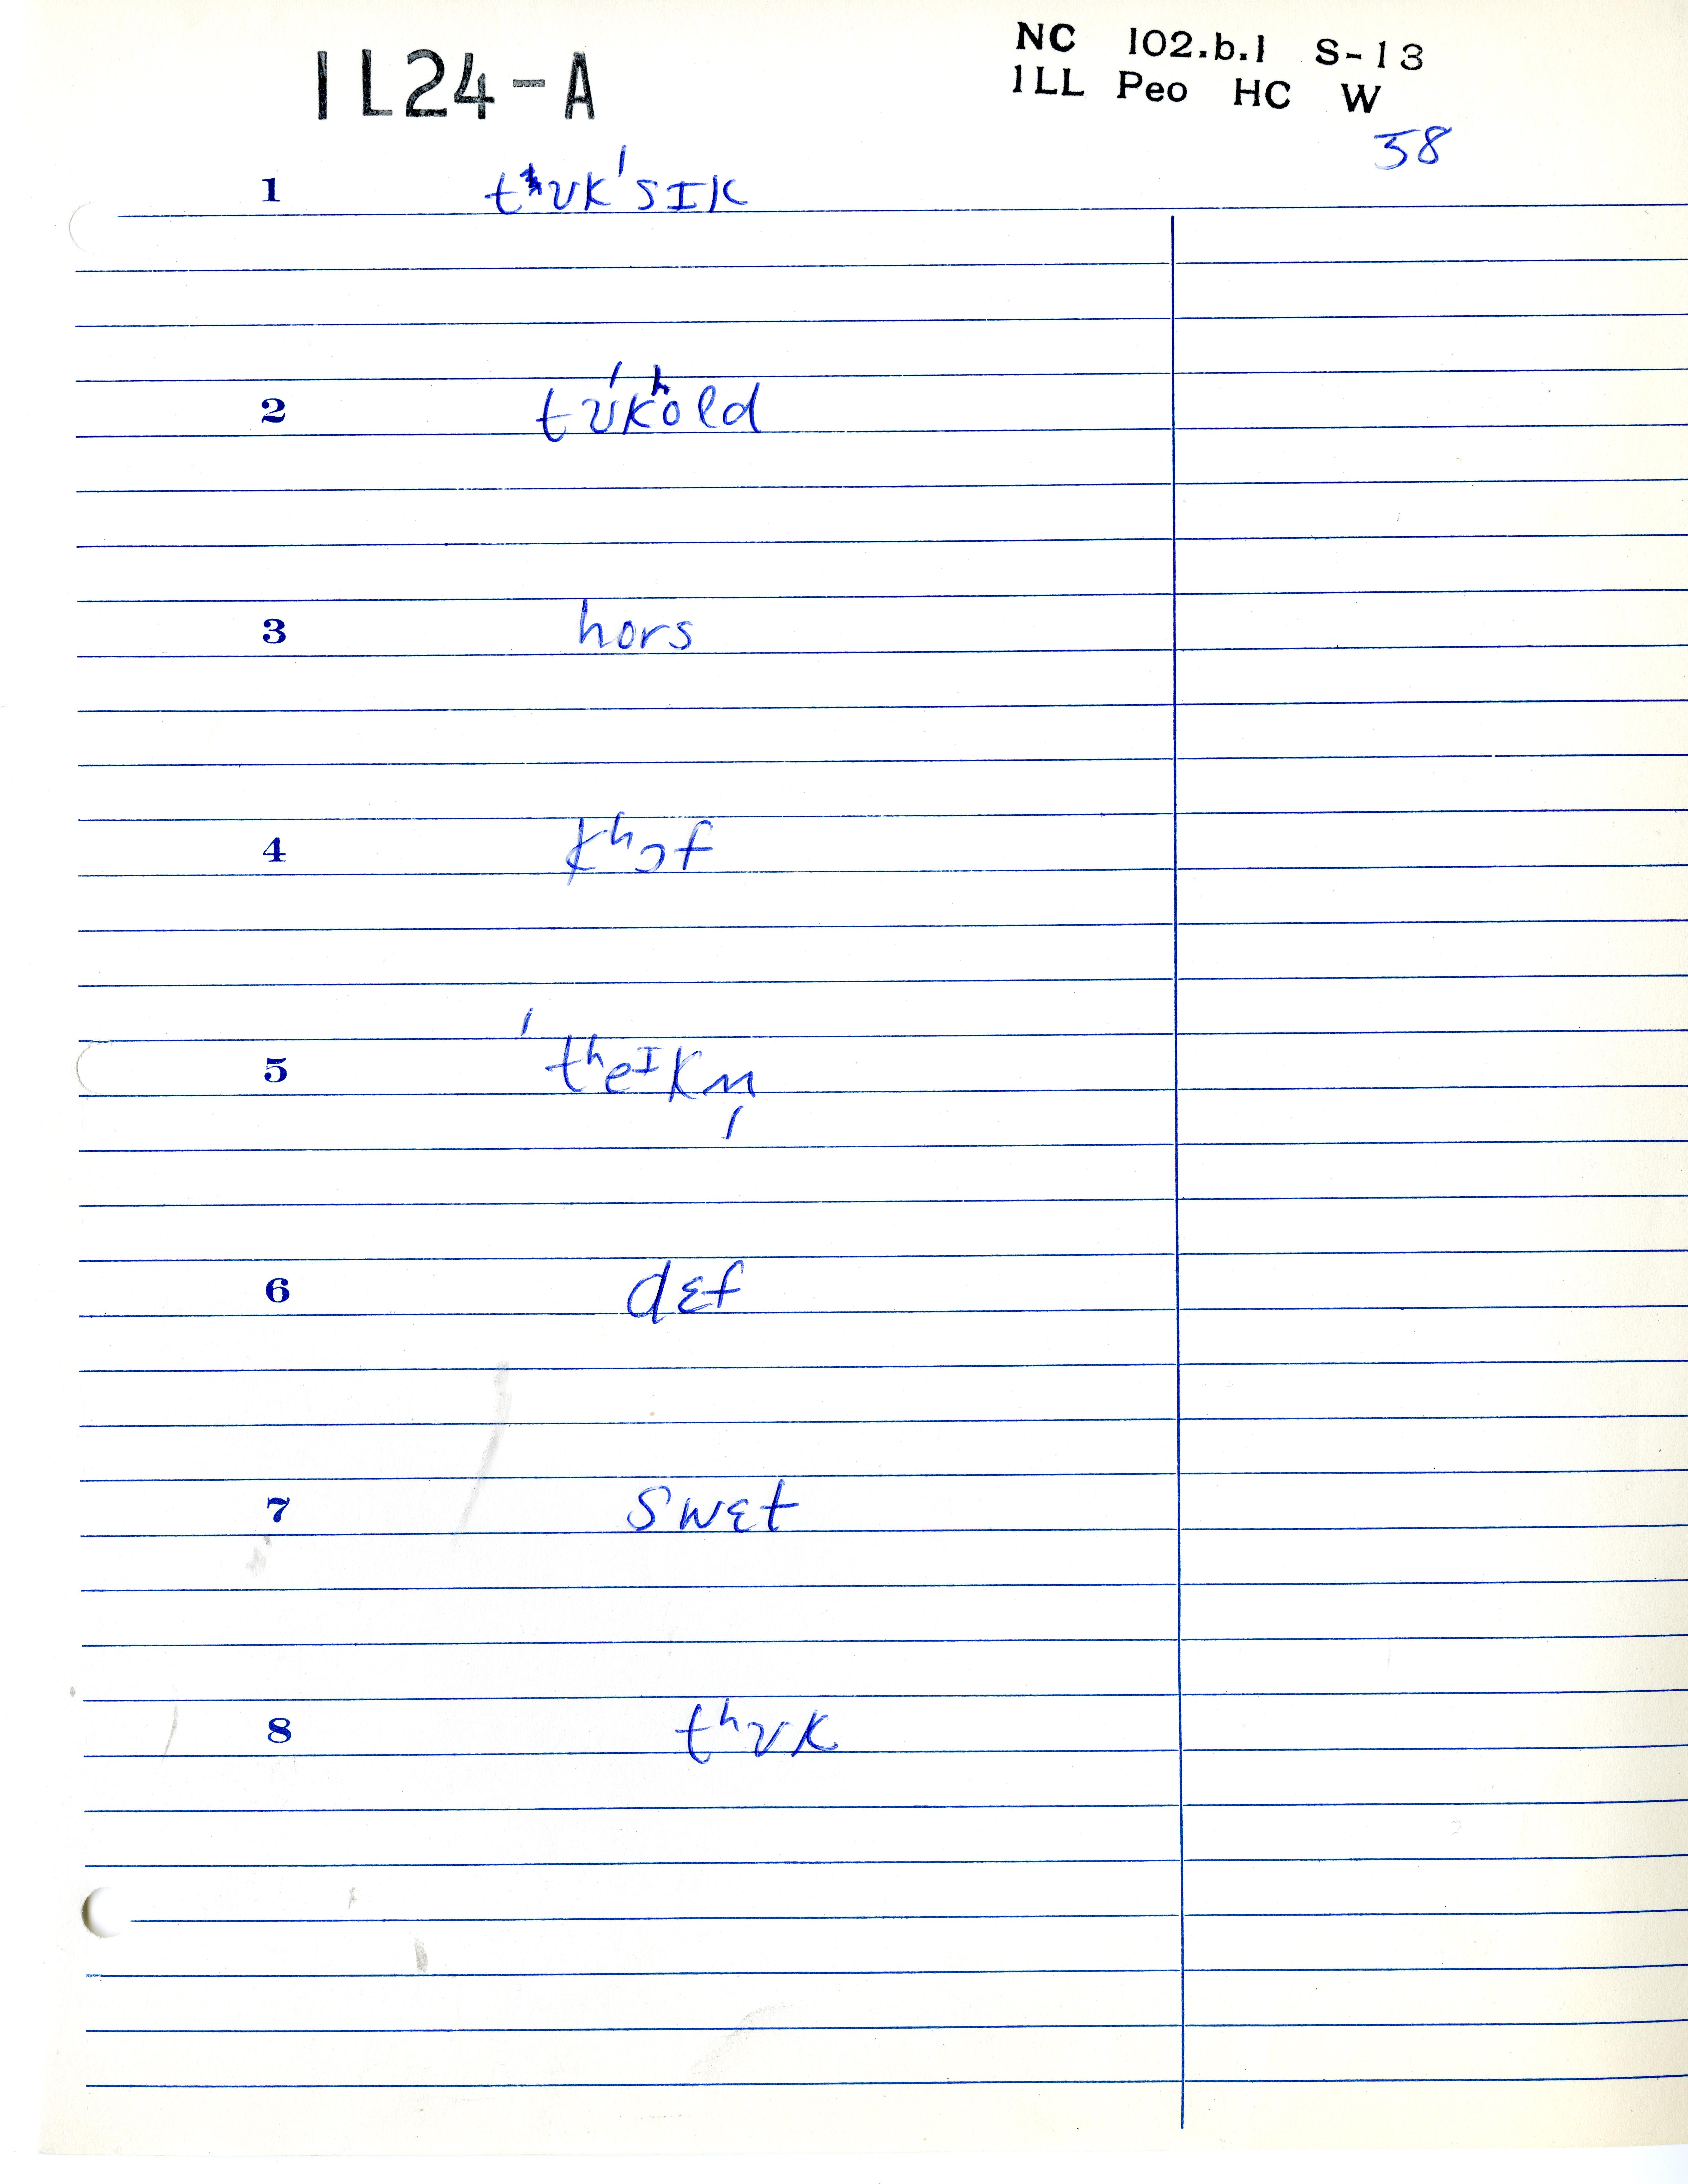 1L24-A
NC 102.b.1 S-13
1LL Peo HC W
58
1 tʊk'sɪk
2 tʊ́kʰold
3 hors
4 kʰɔf
5 ˈtʰeᴵkn̩
6 dɛf
7 swɛt
8 tʰʊk